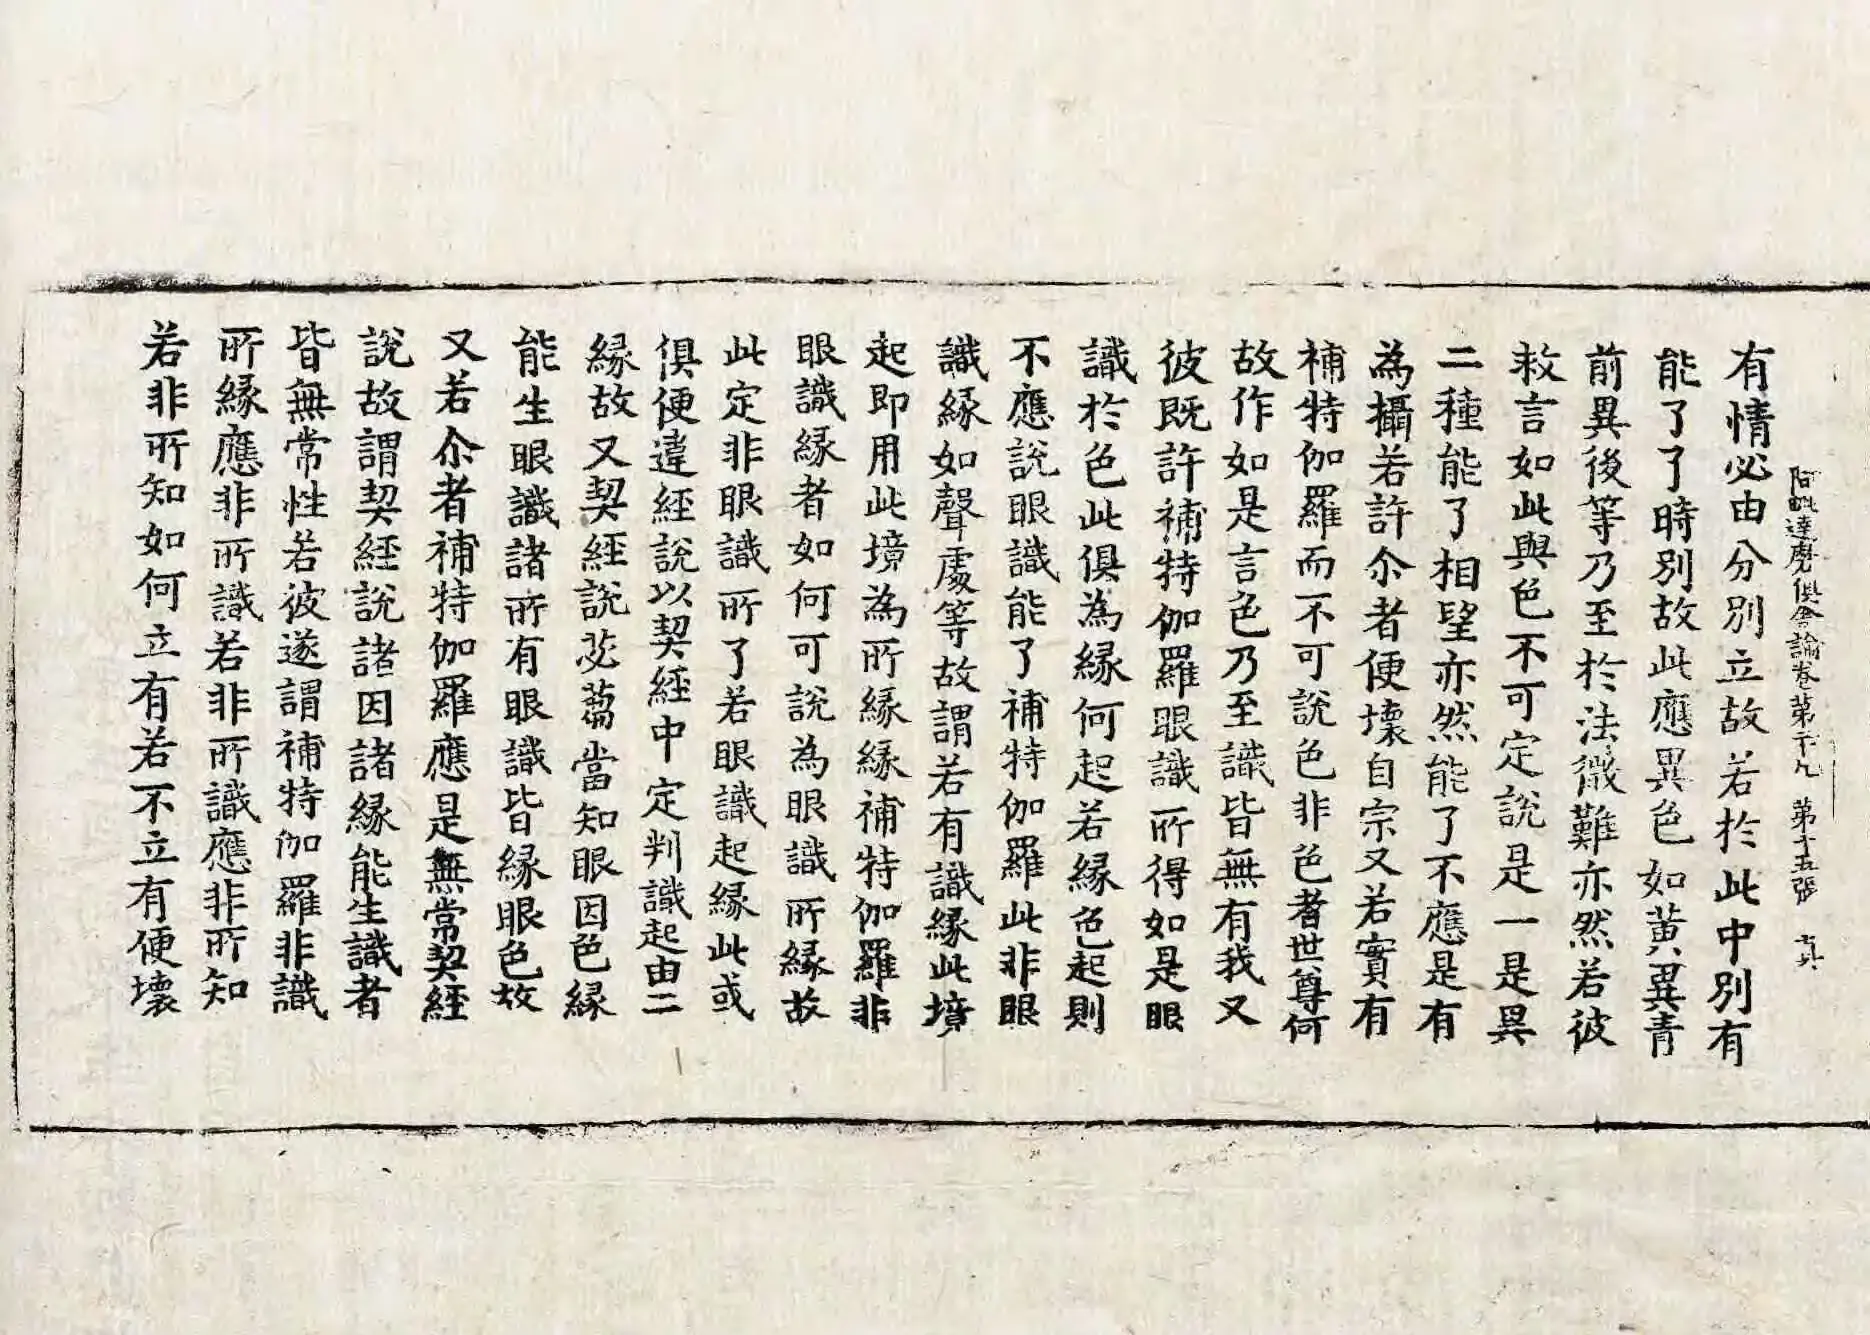 阿毗達磨俱舍論卷第二十九 第十五張 真
有情必由分別立故若於此中別有
能了了時別故此應異色如黃異青
前異後等乃至於法徵難亦然若彼
救言如此與色不可定說是一是異
二種能了相望亦然能了不應是有
為攝若許尒者便壞自宗又若實有
補特伽羅而不可說色非色者世尊何
故作如是言色乃至識皆無有我又
彼既許補特伽羅眼識所得如是眼
識於色此俱為緣何起若緣色起則
不應說眼識能了補特伽羅此非眼
識緣如聲處等故謂若有識緣此境
起即用此境為所緣緣補特伽羅非
眼識緣者如何可說為眼識所緣故
此定非眼識所了若眼識起緣此或
俱便違經說以契經中定判識起由二
緣故又契經說苾蒭當知眼因色緣
能生眼識諸所有眼識皆緣眼色故
又若尒者補特伽羅應是無常契經
說故謂契經說諸因諸緣能生識者
皆無常性若彼遂謂補特伽羅非識
所緣應非所識若非所識應非所知
若非所知如何立有若不立有便壞